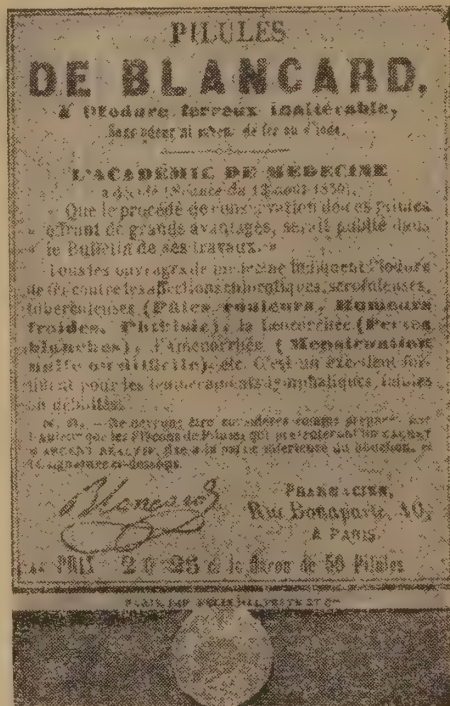 PILULES
DE BLANCARD,
à l'Iodure ferreux inaltérable,
Sans odeur ni saveur de fer ou d'iode.
L'ACADÉMIE DE MÉDECINE
a décidé (Séance du 13 août 1850),
« Que le procédé de conservation de ces pilules
« offrant de grands avantages, serait publié dans
le Bulletin de ses travaux. »
Tous les ouvrages de médecine indiquent l'iodure
de fer contre les affections chlorotiques, scrofuleuses,
tuberculeuses (Pâles couleurs, Humeurs
froides, Phthisie), la leucorrhée (Pertes
blanches), l'aménorrhée (Menstruation
nulle ou difficile), etc. C'est un excellent for-
tifiant pour les tempéraments lymphatiques, faibles
ou débilités.
N. B. — Ne devront être considérés comme préparés par
l'auteur que les Flacons de Pilules qui présenteront un CACHET
D'ARGENT RÉACTIF, fixé à la partie inférieure du bouchon, et
la Signature ci-dessous.
Blancard
PHARMACIEN,
Rue Bonaparte, 40,
A PARIS.
PRIX 2 f. 25 c. le flacon de 50 Pilules
PARIS, IMP. FÉLIX MALTESTE ET Cie